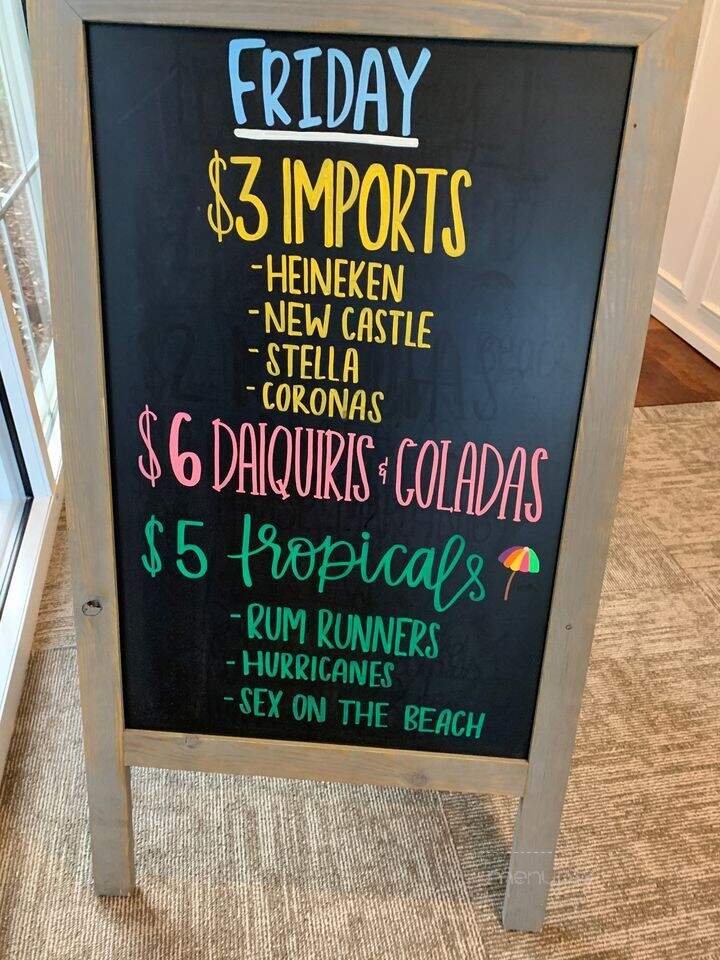 FRIDAY
$3 IMPORTS
-HEINEKEN
-NEW CASTLE
-STELLA
-CORONAS
$6 DAIQUIRIS & COLADAS
$5 tropicals
-RUM RUNNERS
-HURRICANES
-SEX ON THE BEACH